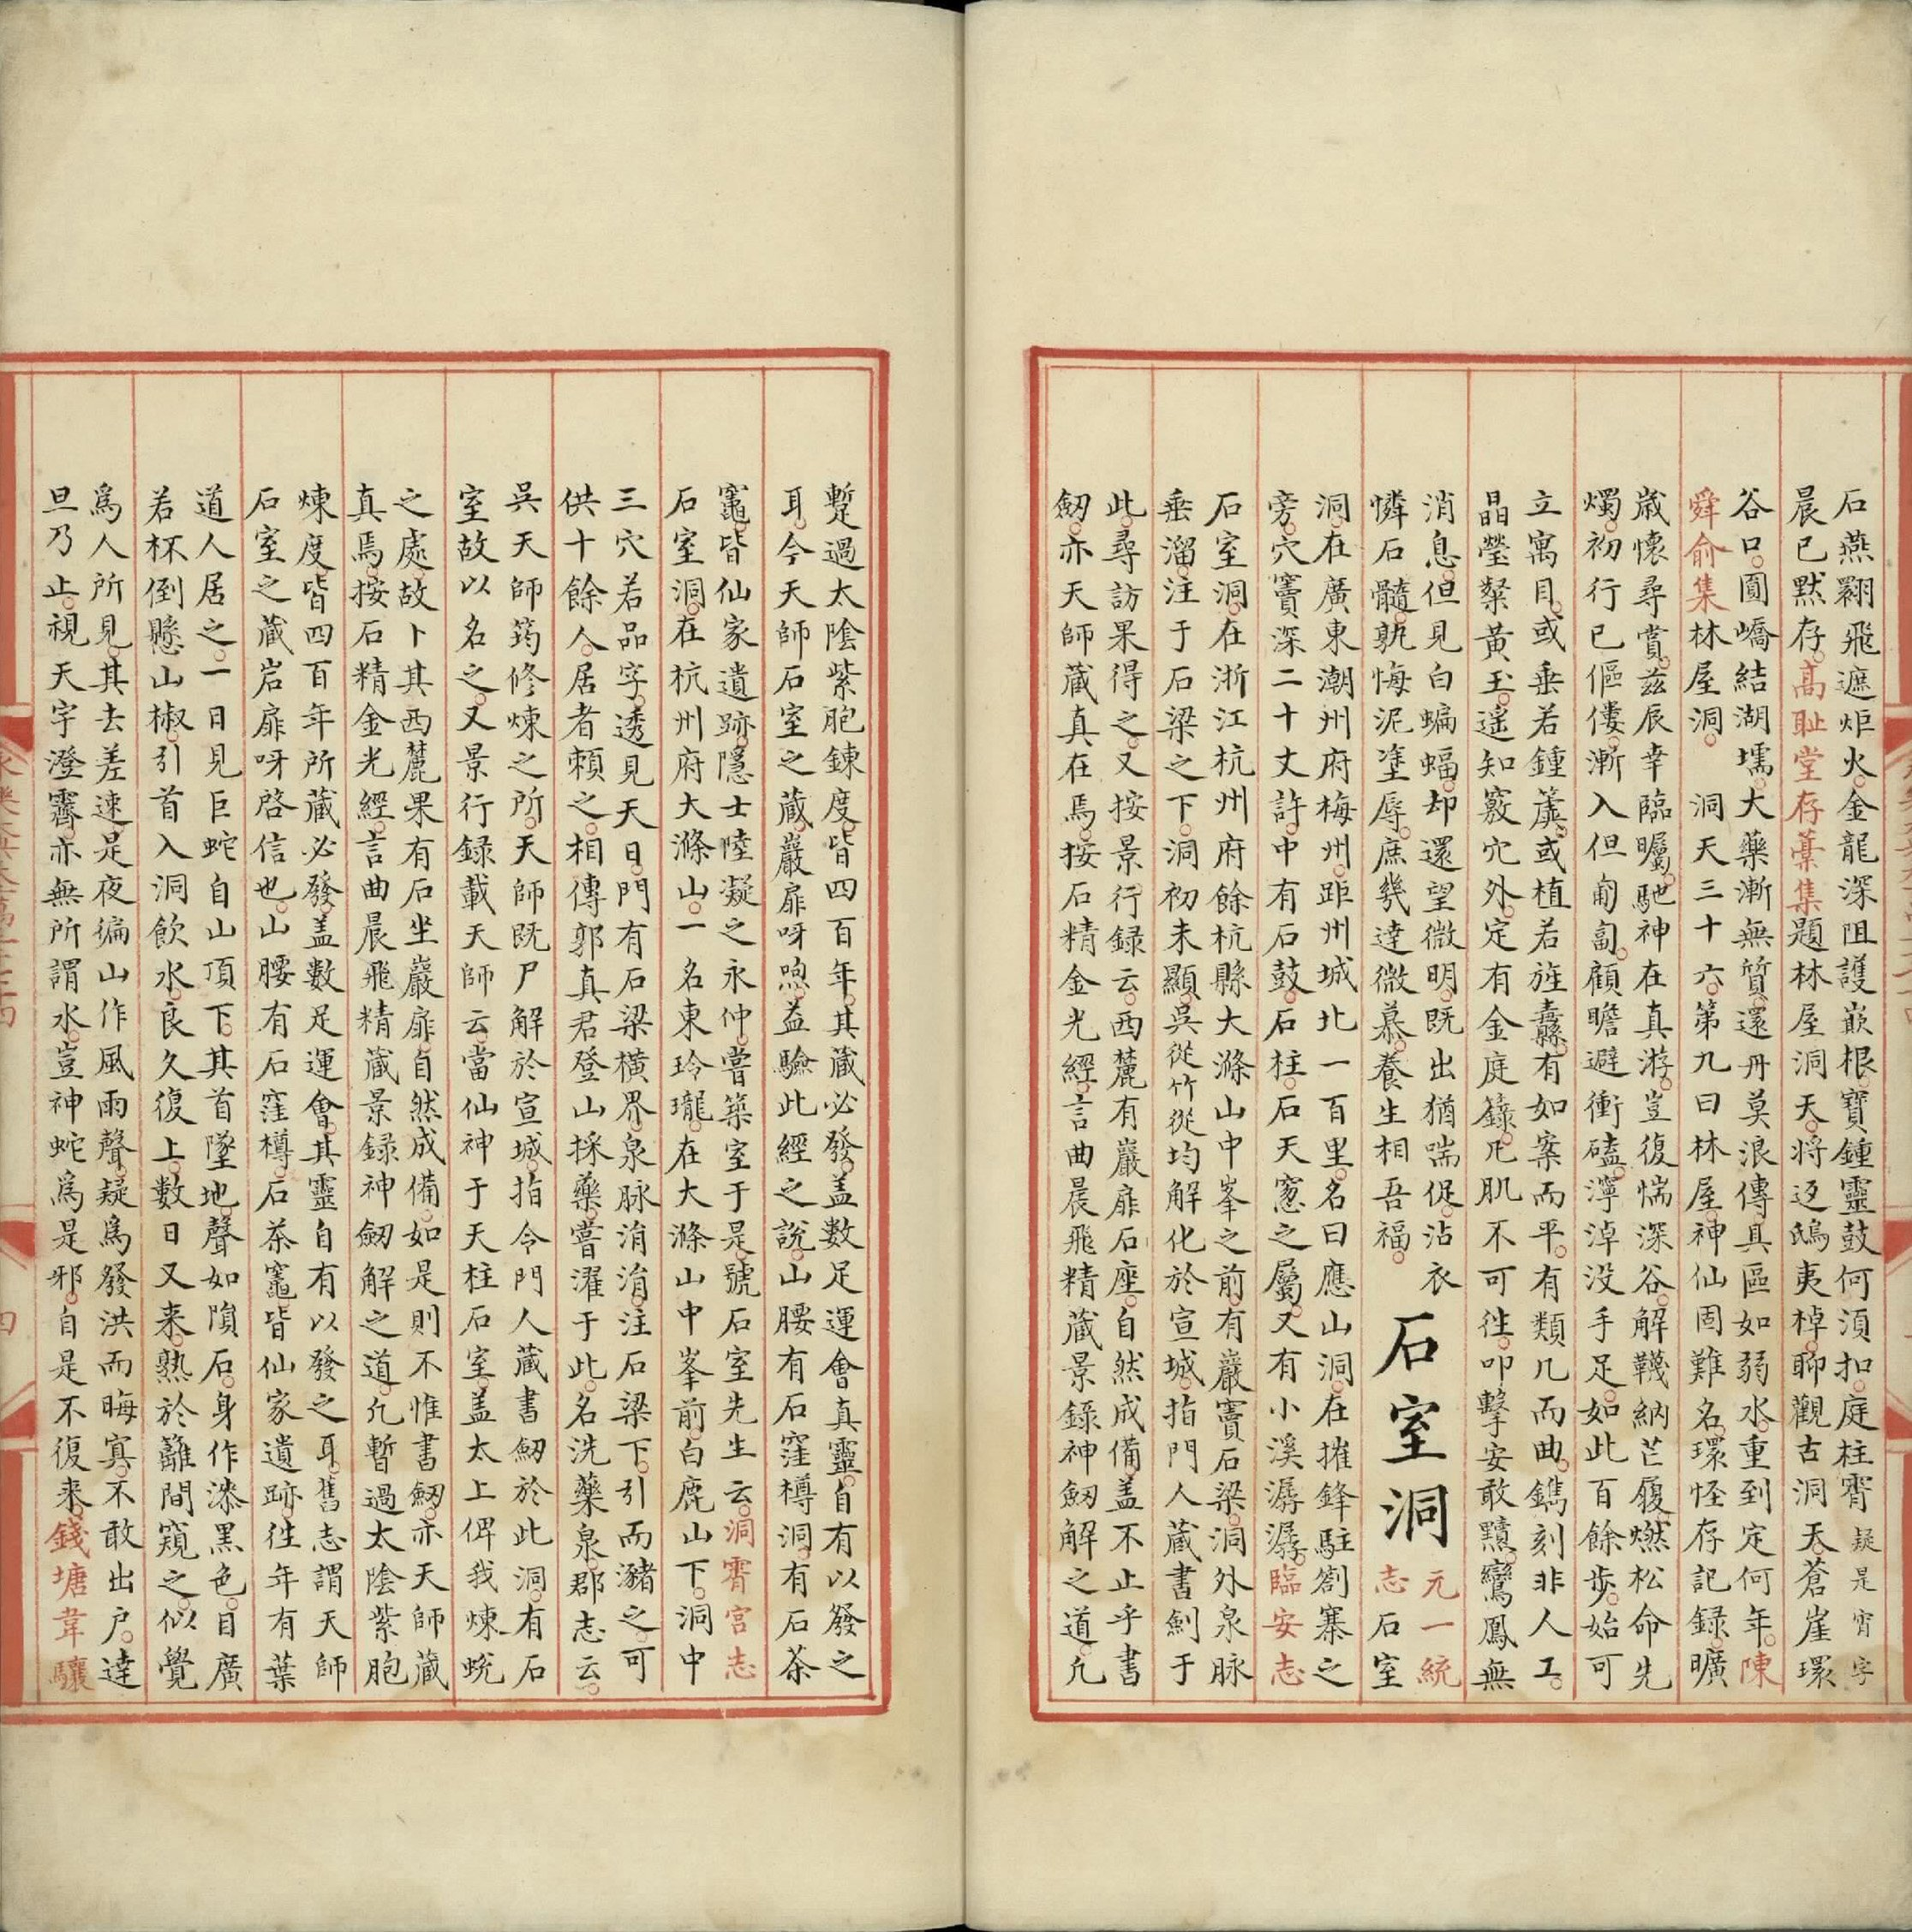 石燕翾飛遮炬火金龍深阻護嵌根寶鍾靈鼓何湏扣庭柱霱疑是宵字
晨已默存髙耻堂存藁集題林屋洞天将返鴟夷棹聊觀古洞天蒼崖環
谷口圓嶠結湖壖大藥漸無質還丹莫浪傳具區如弱水重到定何年陳
舜俞集林屋洞　洞天三十六第九曰林屋神仙固難名環怪存記録曠
歳懐尋賞茲辰幸臨矚馳神在真游豈復惴深谷解韈納芒履燃松命先
燭初行已傴僂漸入但匍匐顧瞻避衝磕濘淖没手足如此百餘歩始可
立寓目或垂若鍾簴或植若旌纛有如案而平有類几而曲鐫刻非人工
晶瑩粲黄玉遙知竅穴外定有金庭籙凡肌不可徃叩擊安敢黷鸞鳳無
消息但見白蝙蝠却還望微明既出猶喘促沾衣
憐石髓孰悔泥塗辱庶幾達微慕養生相吾福
石室洞
元一統
志石室
洞在廣東潮州府梅州距州城北一百里名曰應山洞在摧鋒駐劄寨之
旁穴竇深二十丈許中有石鼓石柱石天窓之屬又有小溪潺潺臨安志
石室洞在浙江杭州府餘杭縣大滌山中峯之前有巖竇石梁洞外泉脉
垂溜注于石梁之下洞初未顯吳從竹從均解化於宣城指門人蔵書劍于
此尋訪果得之又按景行録云西麓有巖扉石座自然成備盖不止乎書
劒亦天師蔵真在焉按石精金光經言曲晨飛精蔵景錄神劒解之道凢
蹔過太陰紫胞錬度皆四百年其蔵必發盖數足運會真靈自有以發之
耳今天師石室之蔵巖扉呀㗢益驗此經之說山腰有石窪樽洞有石茶
竈皆仙家遺跡隱士陸凝之永仲嘗築室于是號石室先生云洞霄宫志
石室洞在杭州府大滌山一名東玲瓏在大滌山中峯前白鹿山下洞中
三穴若品字透見天日門有石梁横界泉脉涓涓注石梁下引而瀦之可
供十餘人居者頼之相傳郭真君登山採藥嘗濯于此名洗藥泉郡志云
吳天師筠修煉之所天師既尸解於宣城指令門人蔵書劒於此洞有石
室故以名之又景行録載天師云當仙神于天柱石室盖太上俾我煉蛻
之處故卜其西麓果有石坐巖扉自然成備如是則不惟書劒亦天師蔵
真焉按石精金光經言曲晨飛精蔵景録神劒解之道凢暫過太陰紫胞
煉度皆四百年所蔵必發盖數足運會其靈自有以發之耳舊志謂天師
石室之蔵岩扉呀啓信也山腰有石窪樽石茶竈皆仙家遺跡徃年有葉
道人居之一日見巨蛇自山頂下其首墜地聲如隕石身作漆黒色目廣
若杯倒懸山椒引首入洞飲水良久復上數日又来熟於籬間窺之似覺
爲人所見其去差速是夜徧山作風雨聲疑爲發洪而晦寘不敢出户達
旦乃止視天宇澄霽亦無所謂水豈神蛇爲是邪自是不復来錢塘韋驤